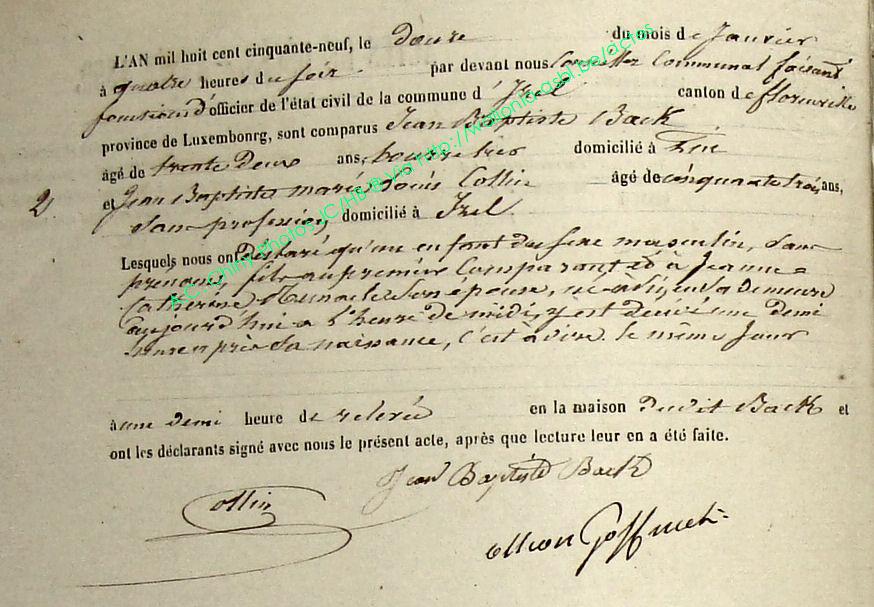 L'AN mil huit cent cinquante-neuf, le douze du mois de Janvier
à quatre heures du soir par devant nous Conseiller Communal faisant
fonctions d'officier de l'état civil de la commune d'Izel canton de florenville
province de Luxembourg, sont comparus Jean Baptiste Back
âgé de trente deux ans, bourrelier domicilié à Izel
2. et Jean Baptiste marie Louis Collin âgé de cinquante trois ans,
sans profession, domicilié à Izel
Lesquels nous ont déclaré qu'un enfant du sexe masculin, sans
prenoms, fils au premier Comparant et à Jeanne
Catherine son épouse, né ici, en sa demeure
aujourd'hui à l'heure de midi, y est décédé une demi
heure après sa naissance, c'est à dire le même jour
à une demi heure de relevée en la maison dudit Back et
ont les déclarants signé avec nous le présent acte, après que lecture leur en a été faite.
Jean Baptiste Back
Collin
Goffinet
AC: Chiny Photos JC/HB © Via http://www.lonia-asbl.be/actes